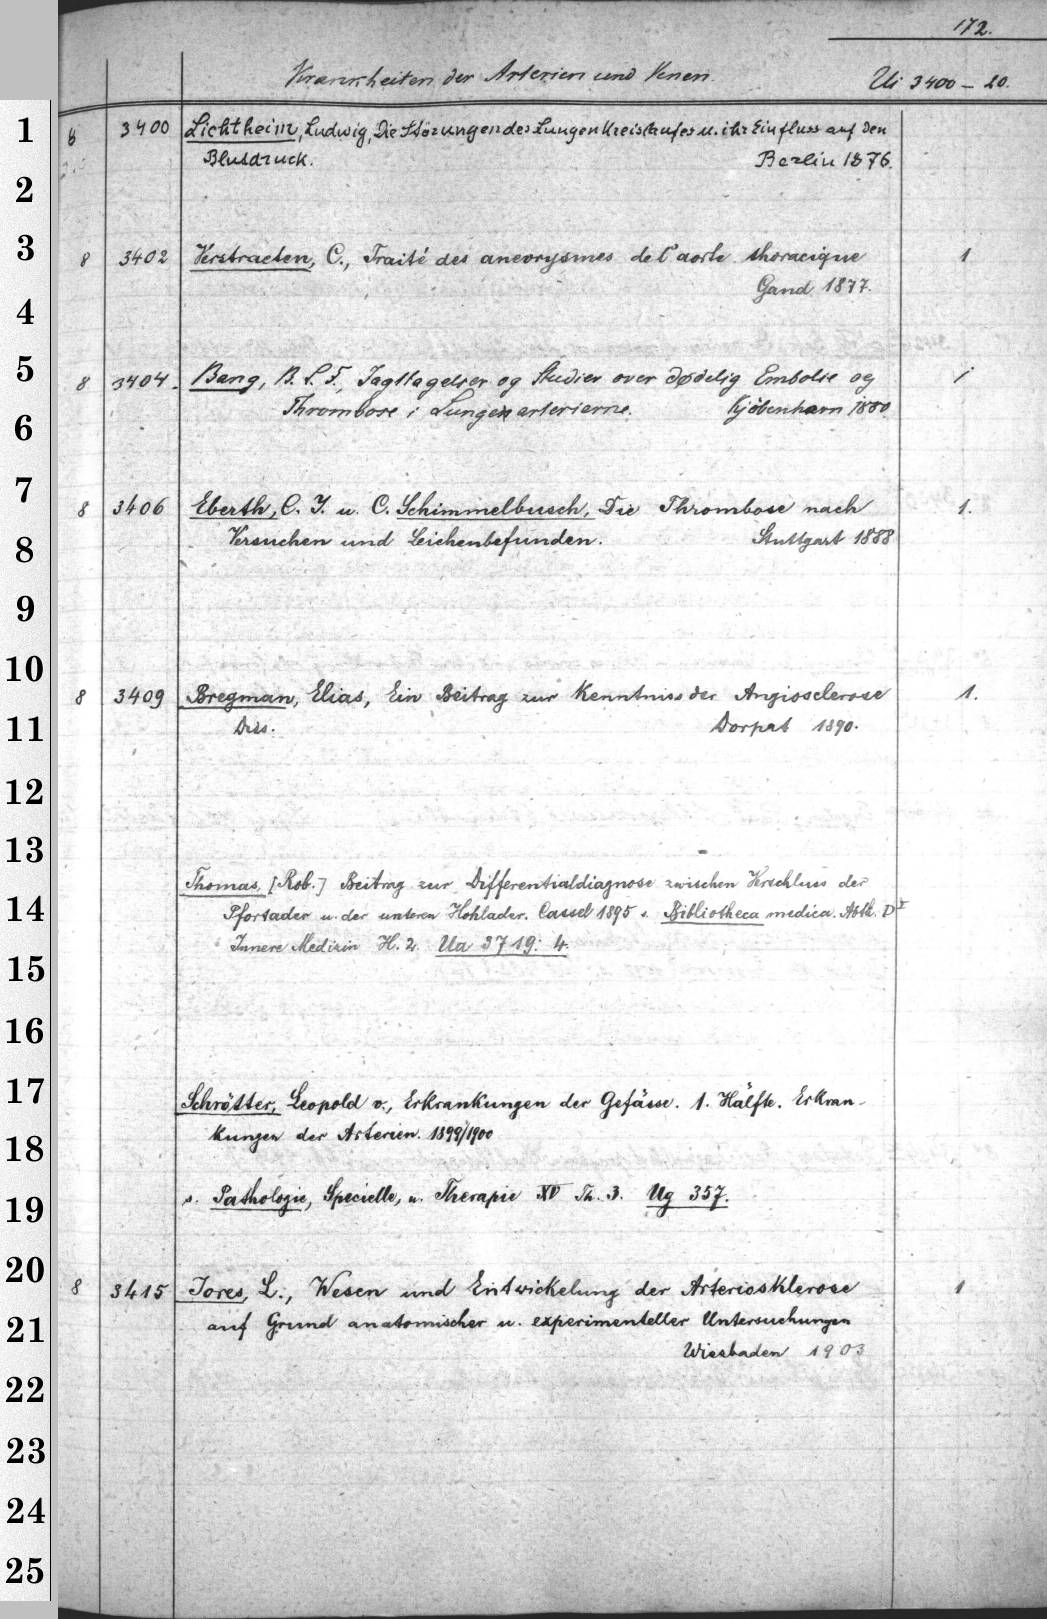 172.
Krankheiten der Arterien und Venen. Ui 3400 – 20.
1 8 3400 Lichtheim, Ludwig, Die Störungen des Lungenkreislaufes u. ihr Einfluss auf den
Blutdruck. Berlin 1876.
2
3 8 3402 Verstraeten, C., Traité des anevrysmes de l'aorte thoracique 1
Gand 1877.
4
5 8 3404. Bang, B. L. F., Jagttagelser og Studier over dødelig Embolie og 1
Thrombose i Lungenarterierne. Kjöbenhavn 1880
6
7 8 3406 Eberth, C. J. u. C. Schimmelbusch, Die Thrombose nach 1.
8 Versuchen und Leichenbefunden. Stuttgart 1888
9
10 8 3409 Bregman, Elias, Ein Beitrag zur Kenntniss der Angiosclerose 1.
11 Diss. Dorpat 1890.
12
13
Thomas, [Rob.] Beitrag zur Differentialdiagnose zwischen Verschluss der
14 Pfortader u. der unteren Hohlader. Cassel 1895 s. Bibliotheca medica. Abth. D I
Innere Medizin H. 2. Ua 3719: 4.
15
16
17 Schrötter, Leopold v., Erkrankungen der Gefässe. 1. Hälfte. Erkran-
18 kungen der Arterien. 1899/1900
19 s. Pathologie, Specielle, u. Therapie XV Th. 3. Ug 357.
20 8 3415 Jores, L., Wesen und Entwickelung der Arteriosklerose 1
21 auf Grund anatomischer u. experimenteller Untersuchungen
Wiesbaden 1903
22
23
24
25